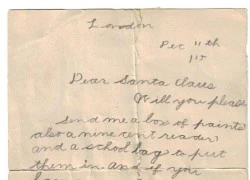 London
Dec 11th
Dear Santa Claus
Will you please
send me a box of paints
also a nine cent reader
and a school bag to put
them in and if you